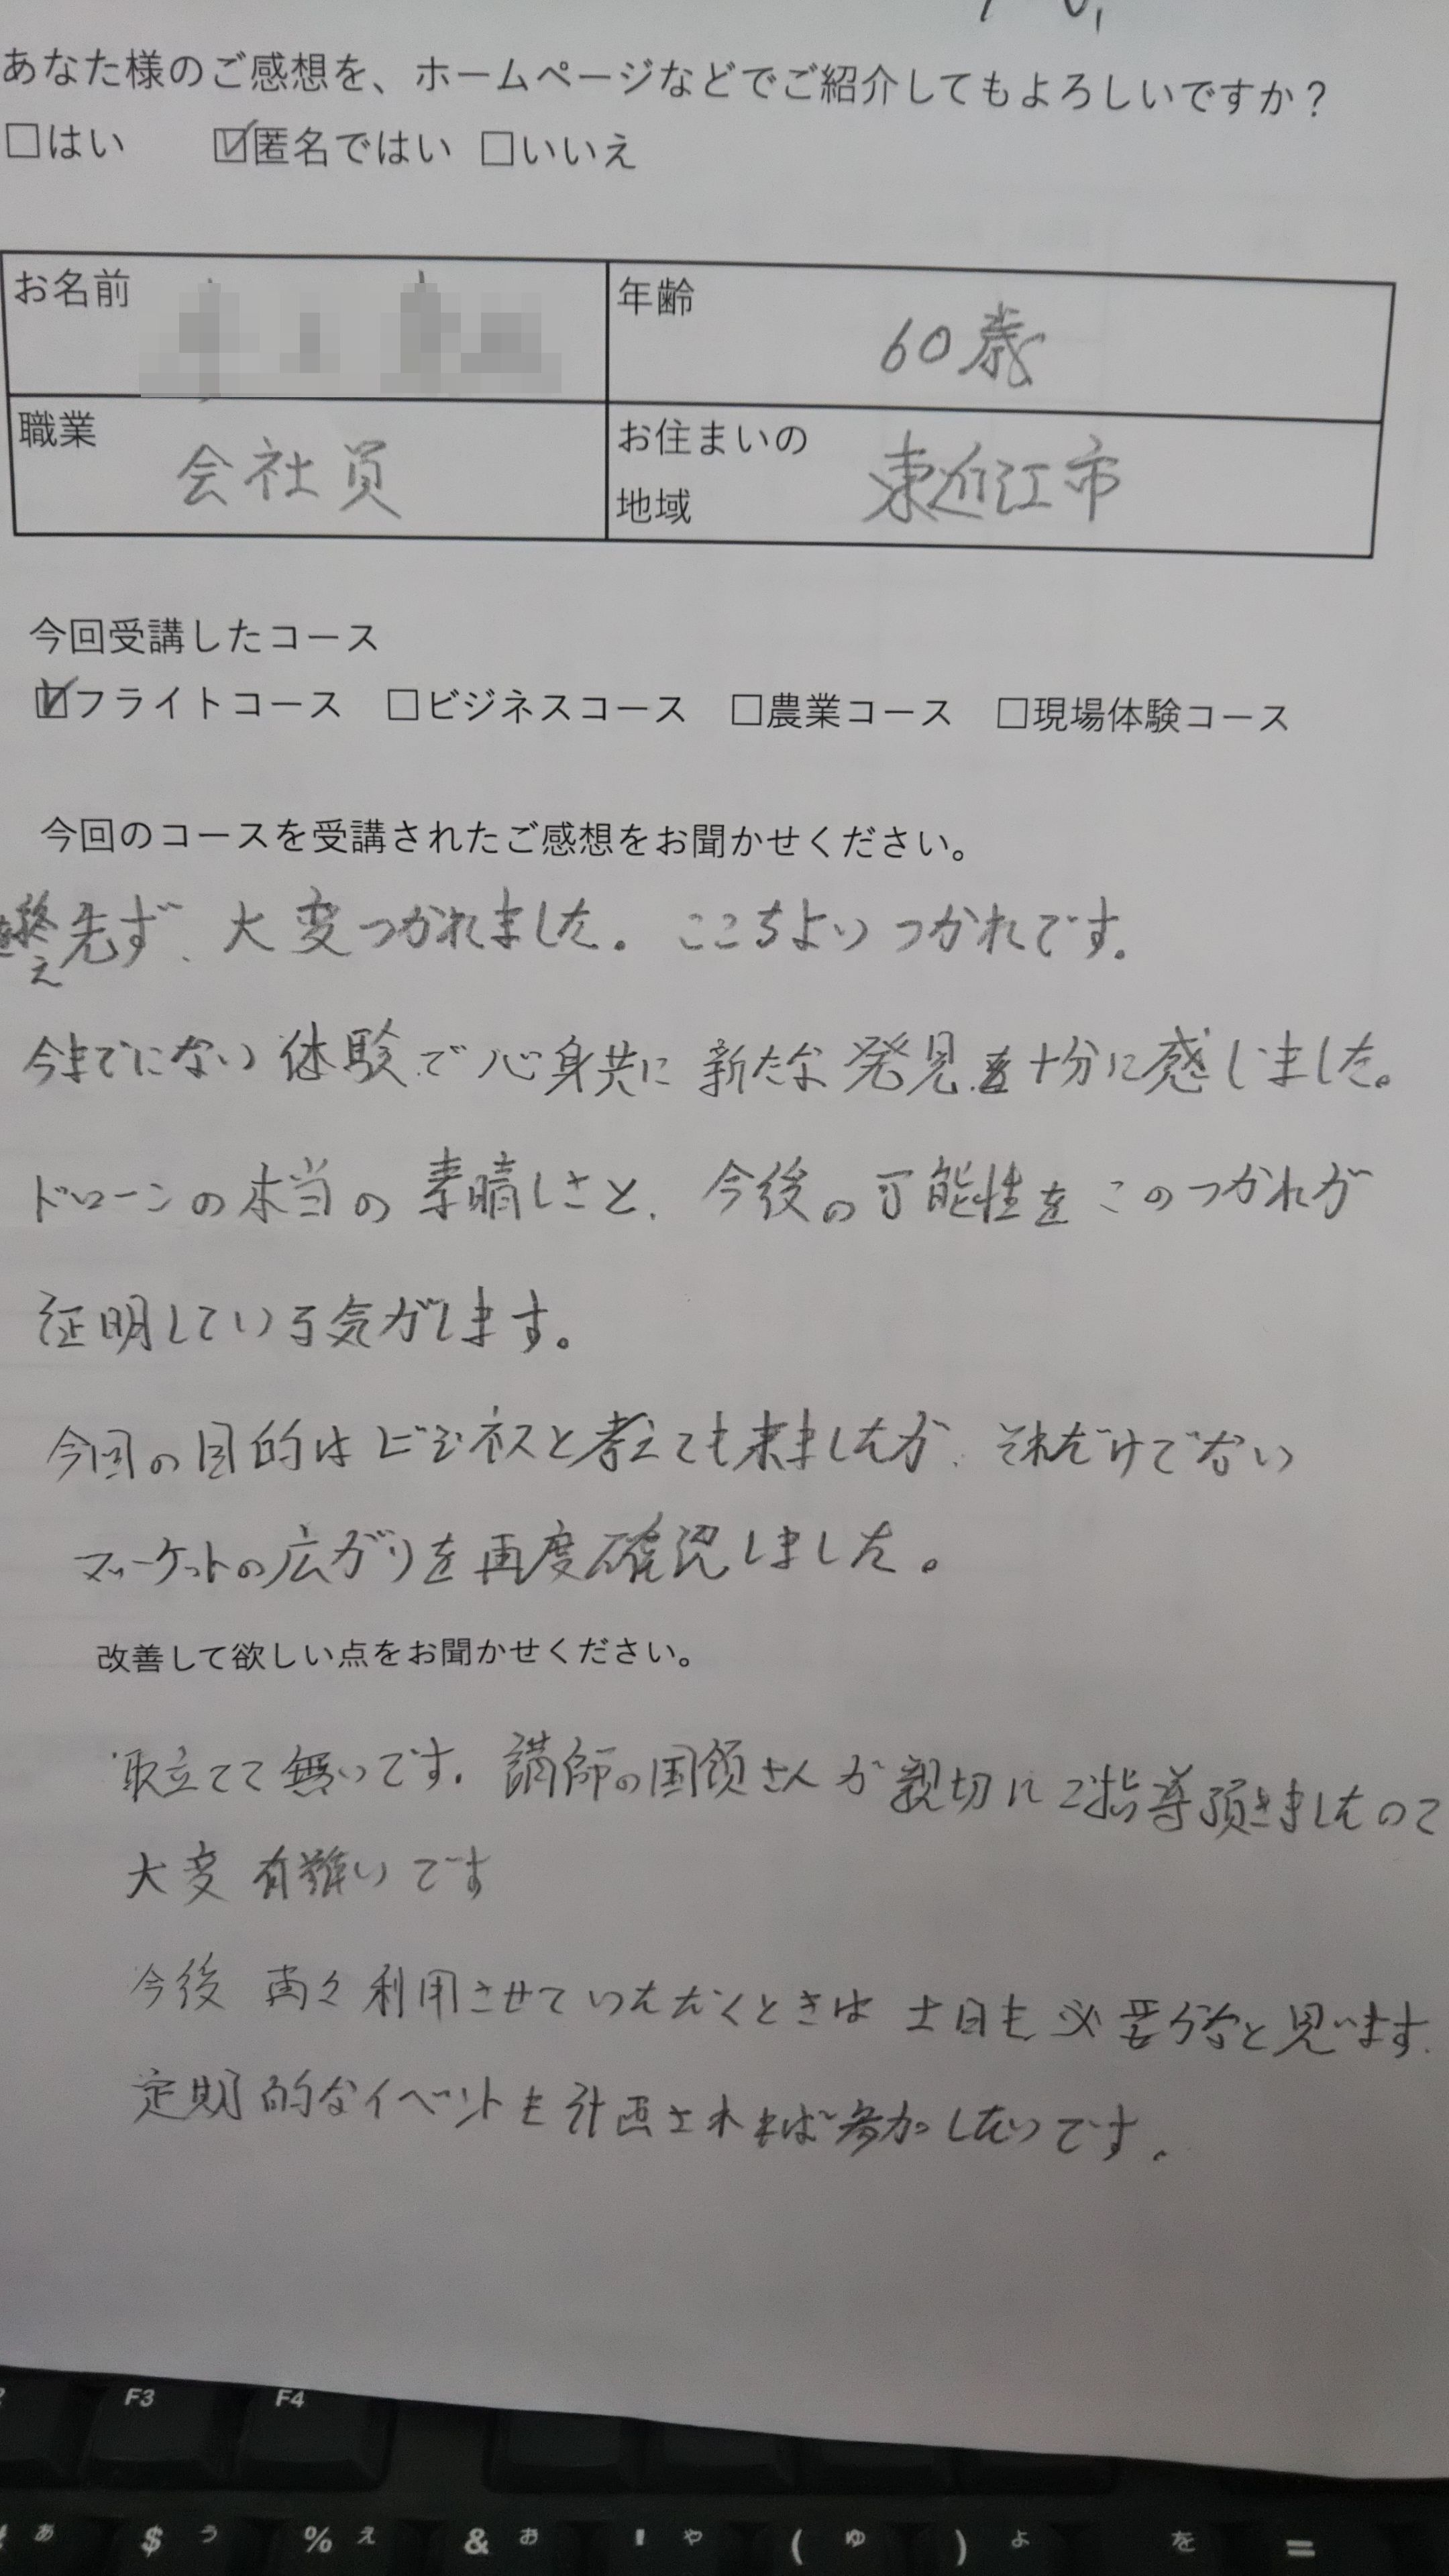 あなた様のご感想を、ホームページなどでご紹介してもよろしいですか？
□はい ☑匿名ではい □いいえ
お名前
年齢 60歳
職業 会社員
お住まいの
地域 東近江市
今回受講したコース
☑フライトコース □ビジネスコース □農業コース □現場体験コース
今回のコースを受講されたご感想をお聞かせください。
終え先ず、大変つかれました。ここちよいつかれです。
今までにない体験で心身共に新たな発見を十分に感じました。
ドローンの本当の素晴しさと、今後の可能性をこのつかれが
証明している気がします。
今回の目的はビジネスと考えても来ましたが、それだけでない
マーケットの広がりを再度確認しました。
改善して欲しい点をお聞かせください。
取立てて無いです。講師の国領さんが親切にご指導頂きましたので
大変有難いです
今後再々利用させていただくときは土日も必要かなと思います.
定期的なイベントも計画されれば参加したいです。
F3 F4
あ $ う % え & お ' や ( ゆ ) よ を =